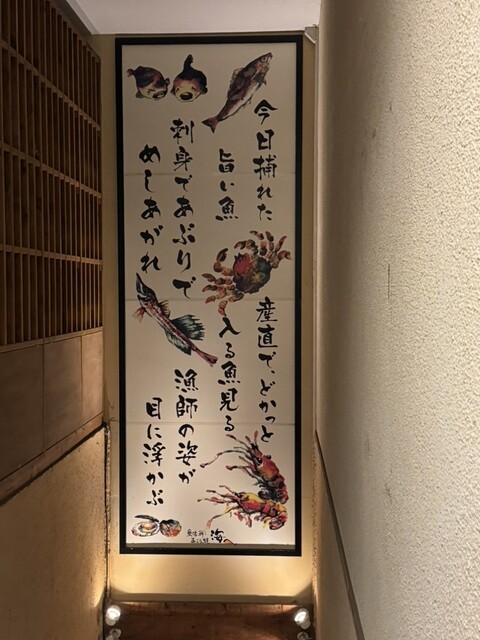 今日捕れた
旨い魚
刺身であぶりで
めしあがれ
産直で、どかっと
入る魚見る
漁師の姿が
目に浮かぶ
海